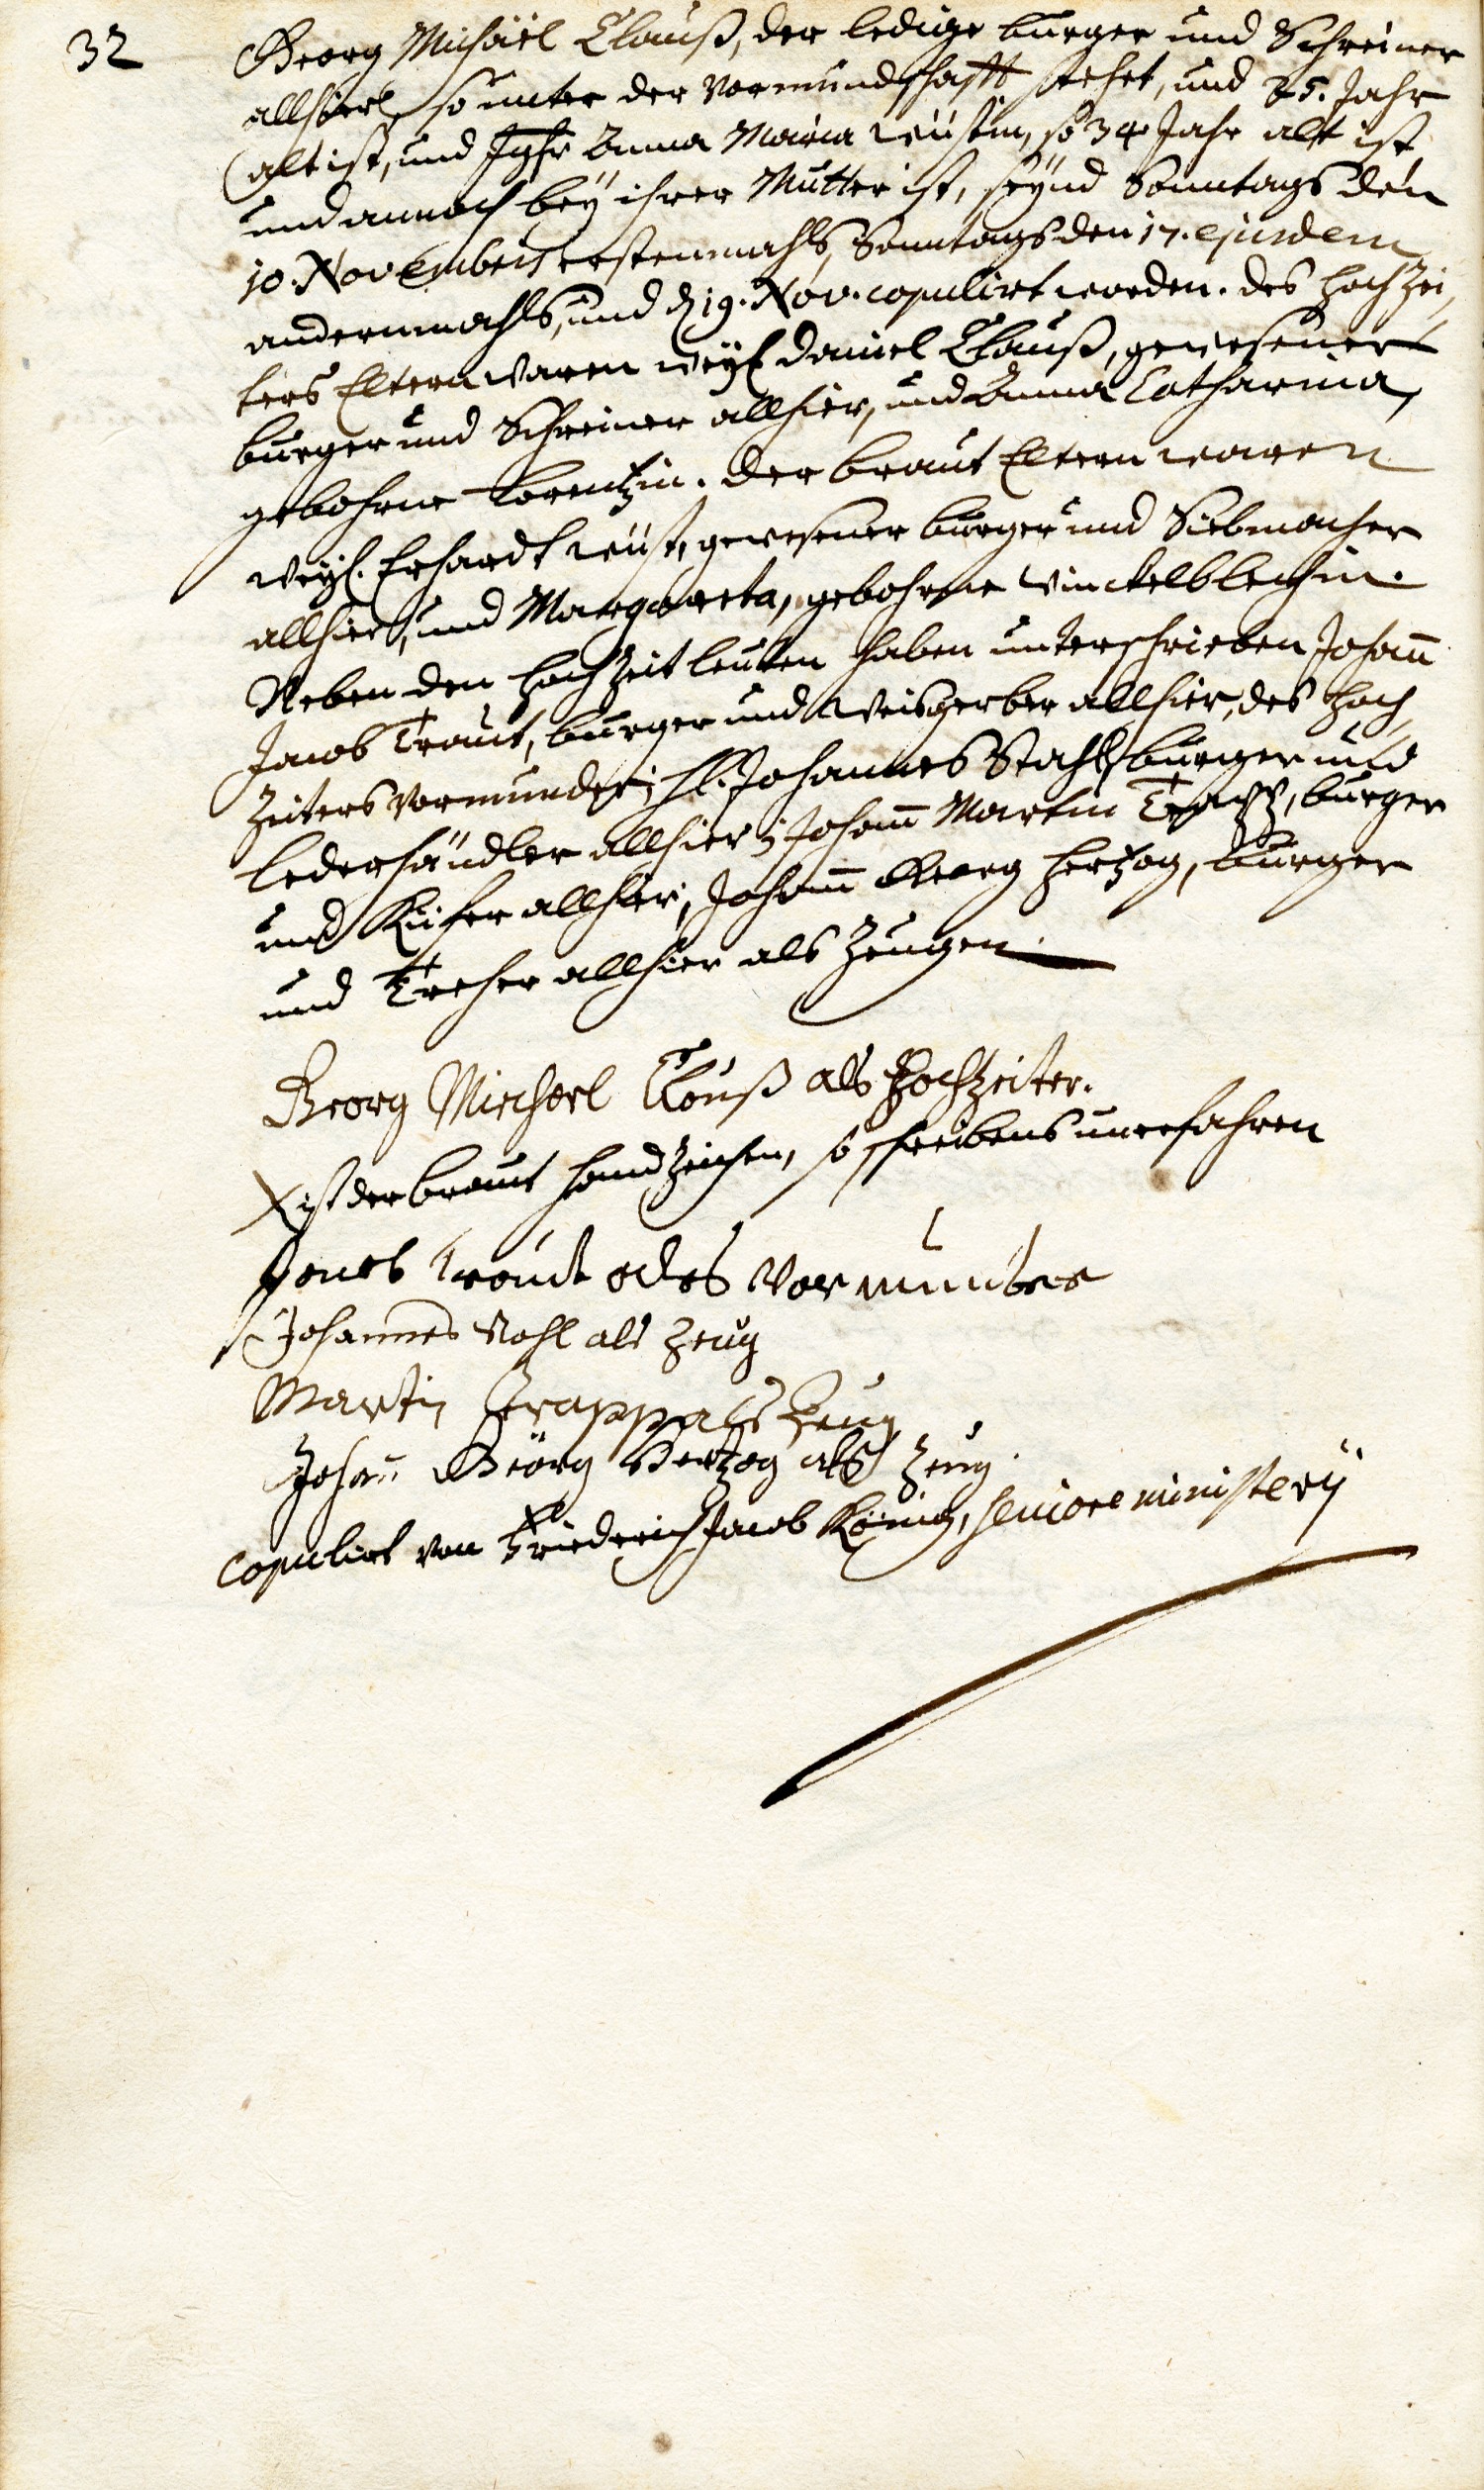 32
Georg Michäel Clauß, der ledige burger und Schreiner
allhier, so unter der Vormundschafft stehet, und 25. Jahr
alt ist, und Jgfr Anna Maria Wüstin, so 34 Jahr alt ist
und annoch beÿ ihrer Mutter ist, seÿnd Sonntags den
10. Novembris erstenmahls, Sonntags den 17. ejusdem
andernmahls, und d. 19. Nov. copulirt worden. des Hochzei,
ters Eltern waren weÿl. Daniel Clauß, gewesener
burger und Schreiner allhier, und Anna Catharina,
gebohrne Lorentzin. der braut Eltern waren
weÿl. Erhardt Wüst, gewesener burger und Siebmacher
allhier, und Margareta, gebohrne Winckelblechin.
Neben den Hochzeitleuten haben unterschrieben Johann
Jacob Traut, burger und Weisgerber allhier, des Hoch,
zeiters Vormunder; H. Johannes Stahl, burger und
Lederhändler allhier; Johann Martin Trapp, burger
und Küfer allhier, Johann Georg Hertzog, burger
und Treher allhier als Zeugen.
Georg Michael Clauß als Hochzeiter.
X ist der braut handzeichen, so schreibens unerfahren
Jacob Traut als Vormunder
Johannes Stahl als Zeug
Martin Trapp als Zeug
Johann Georg Hertzog als Zeug.
Copulirt von Friederich Jacob König, seniore ministerii